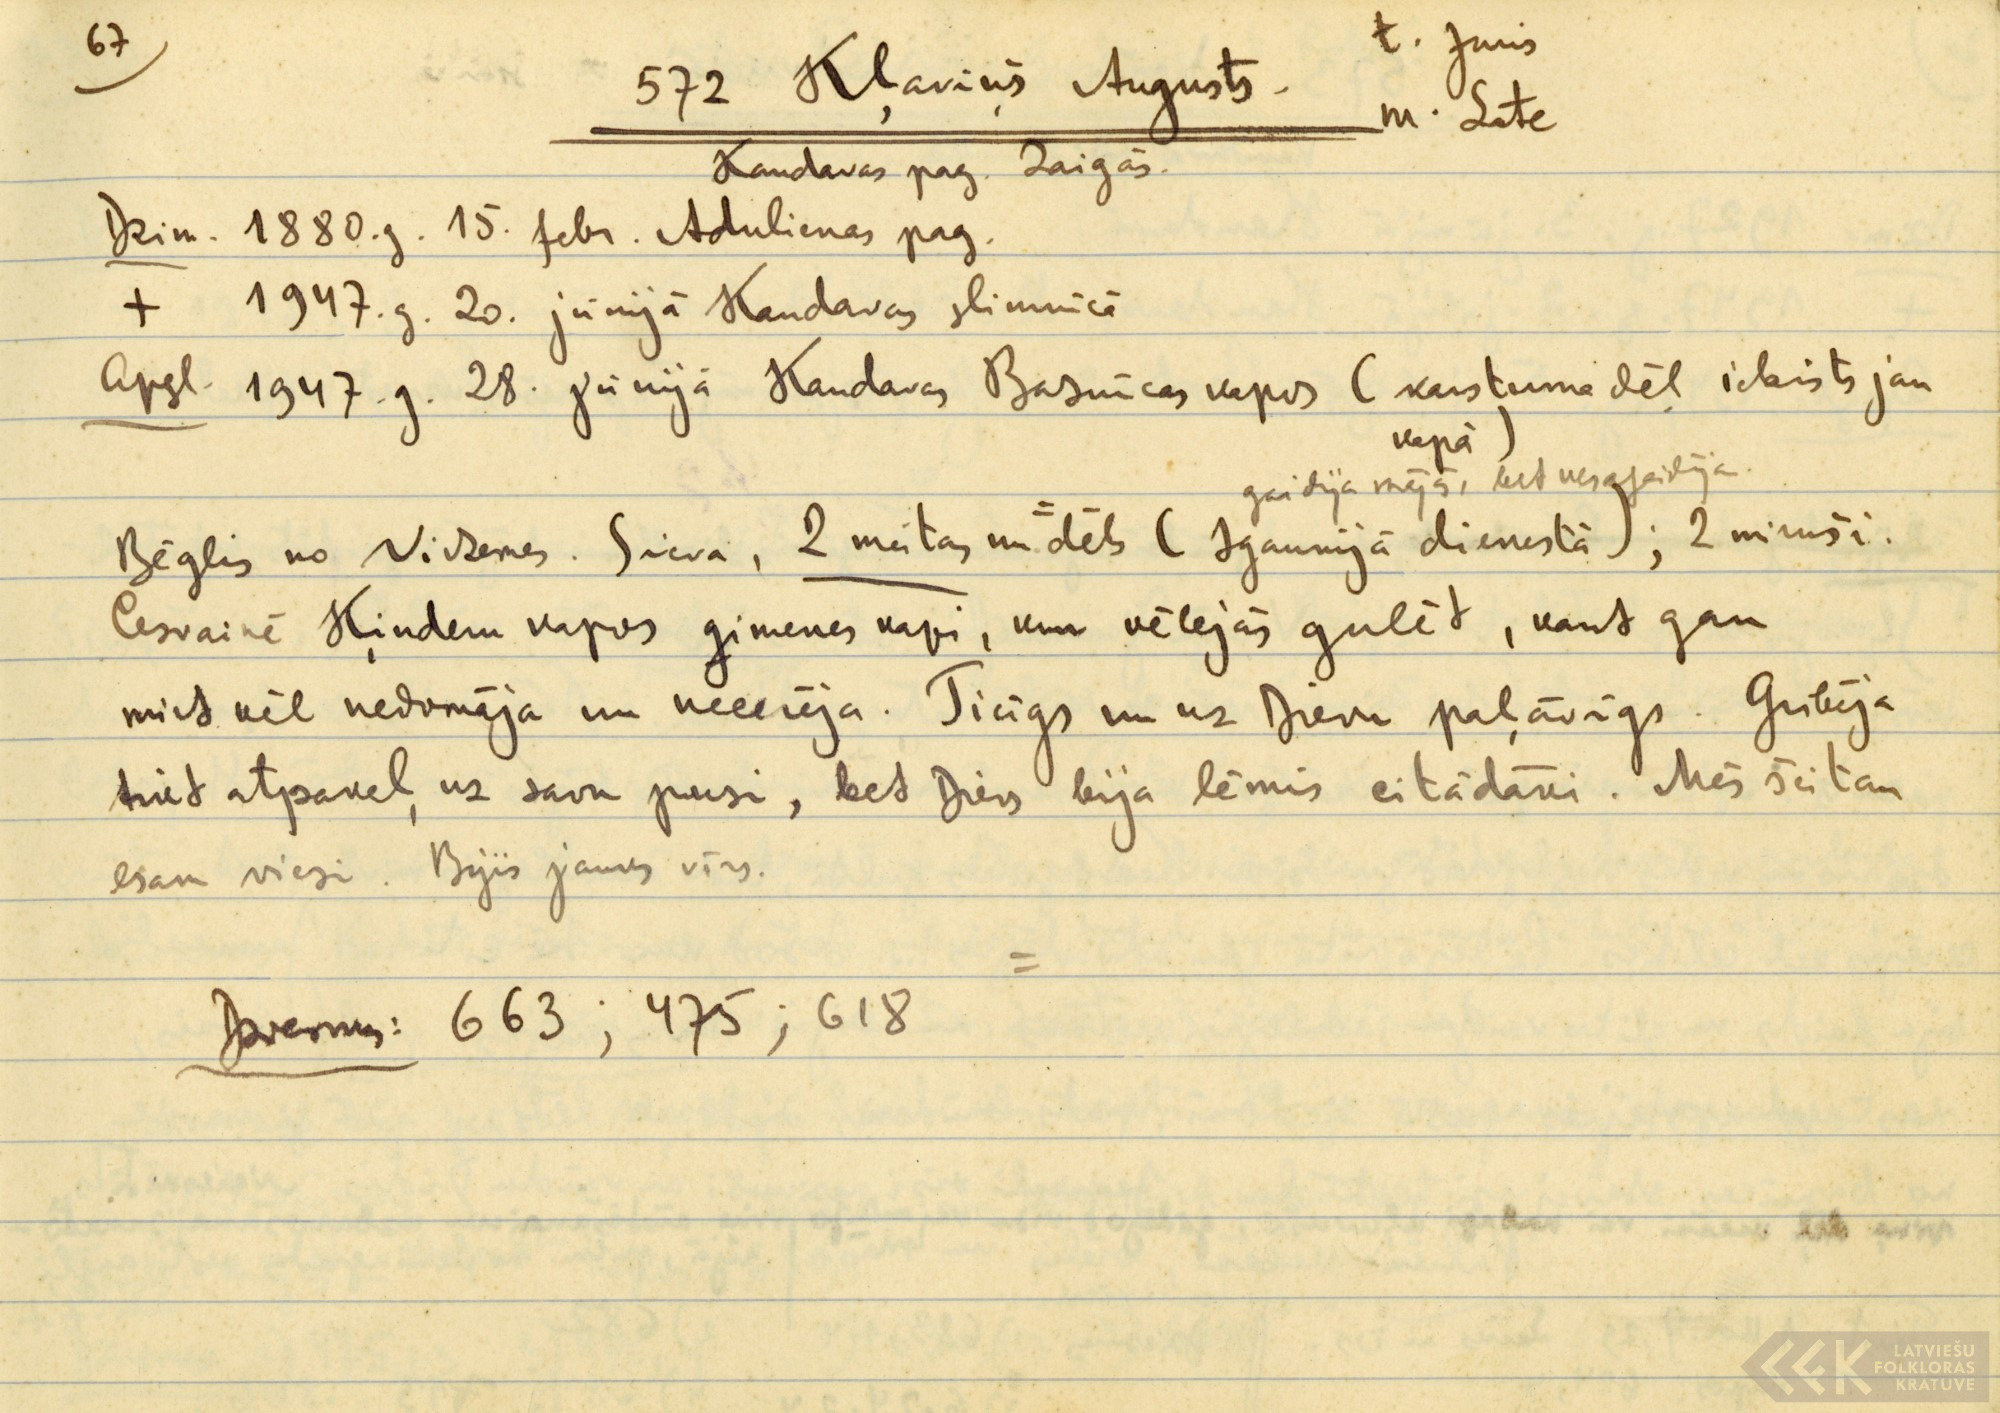 67
572 Kļaviņš Augusts.
t. Juris
m. Late
Kandavas pag. Zaigās.
Dzim. 1880.g. 15. febr. Adulienas pag.
+ 1947.g. 20. jūnijā Kandavas slimnīcā
Apgl. 1947.g. 28. jūnijā Kandavas Baznīcas kapos (karstuma dēļ ielaists jau
kapā)
gaidīja mājās, bet nesagaidīja.
Bēglis no Vidzemes. Sieva, 2 meitas un dēls (Igaunijā dienestā); 2 miruši.
Cesvainē Ķinderu kapos ģimenes kapi, kur vēlējās gulēt, kaut gan
mirt vēl nedomāja un necerēja. Ticīgs un uz Dievu paļāvīgs. Gribēja
tikt atpakaļ uz savu pusi, bet Dievs bija lēmis citādāki. Mēs šeitan
esam viesi. Bijis jauks vīrs.
=
Dziesmas: 663; 475; 618
LATVIEŠU
FOLKLORAS
KRATUVE